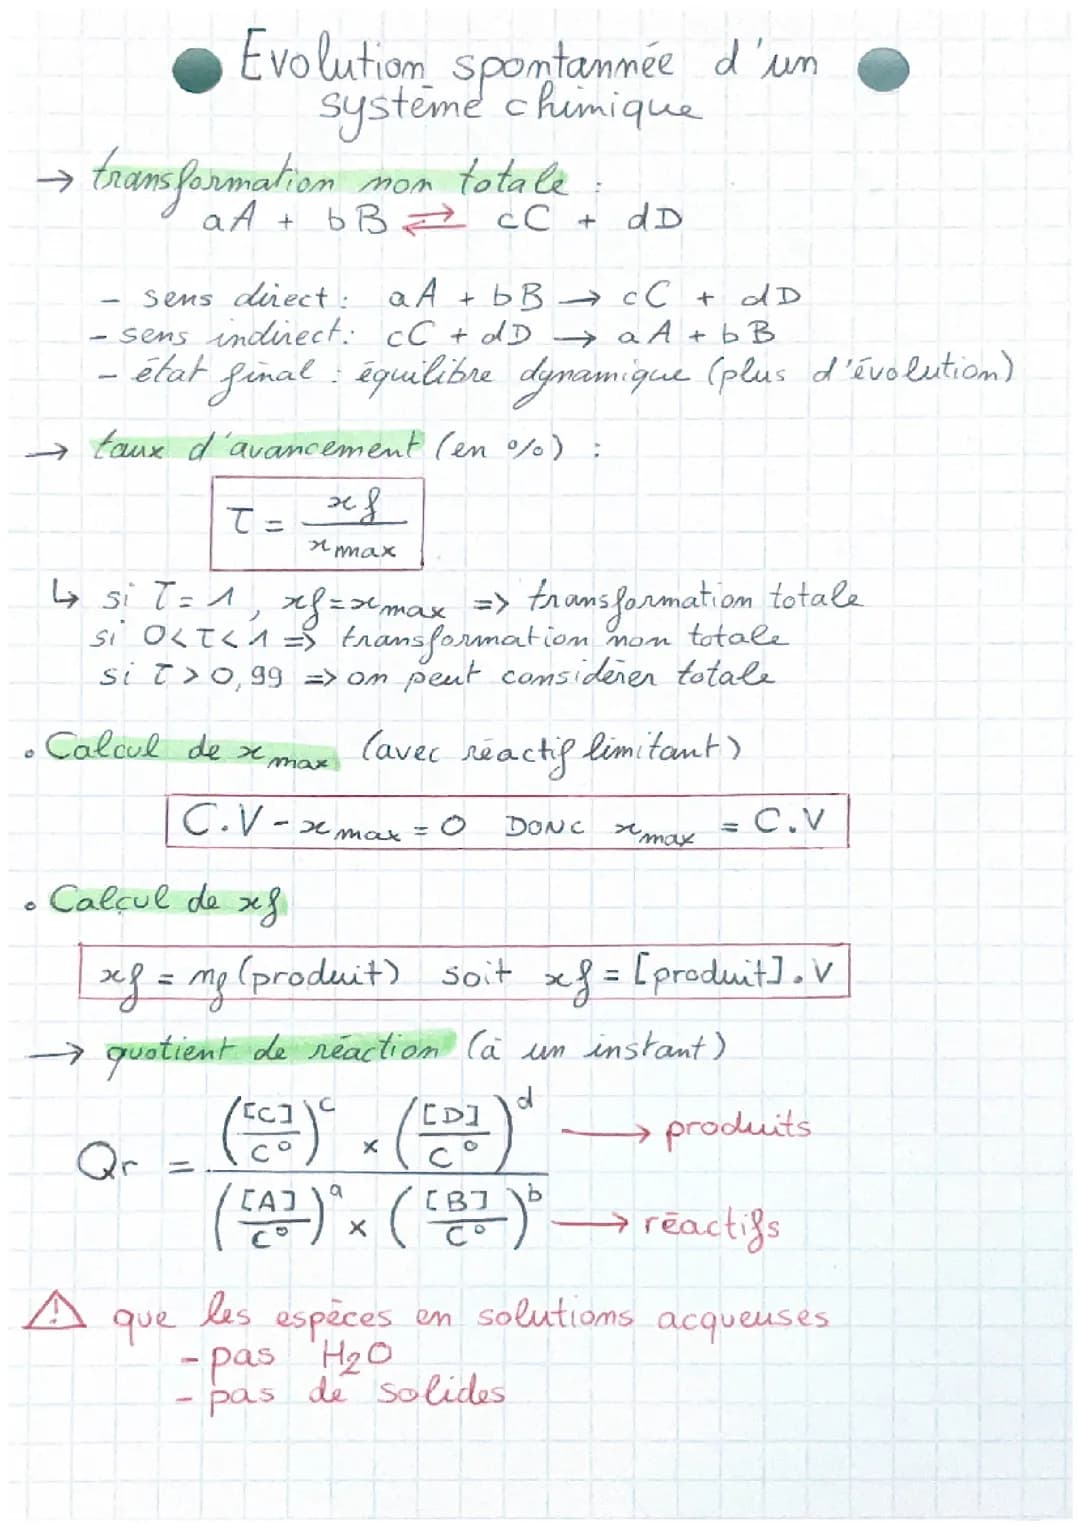 Evolution spontannée d'un
système chimique
→ transformation non totale :
aA + bB ⇄ cC + dD
- sens direct : aA + bB → cC + dD
- sens indirect : cC + dD → aA + bB
- état final : équilibre dynamique (plus d'évolution)
→ taux d'avancement (en %) :
τ = xf / xmax
↳ si τ = 1, xf = xmax => transformation totale
si 0 < τ < 1 => transformation non totale
si τ > 0,99 => on peut considérer totale
• Calcul de xmax (avec réactif limitant)
C.V - xmax = 0 DONC xmax = C.V
• Calcul de xf
xf = nf (produit) soit xf = [produit].V
→ quotient de réaction (à un instant)
Qr = (([C]/C°)^c × ([D]/C°)^d) / (([A]/C°)^a × ([B]/C°)^b)
→ produits
→ réactifs
⚠ que les espèces en solutions acqueuses
- pas H₂O
- pas de solides